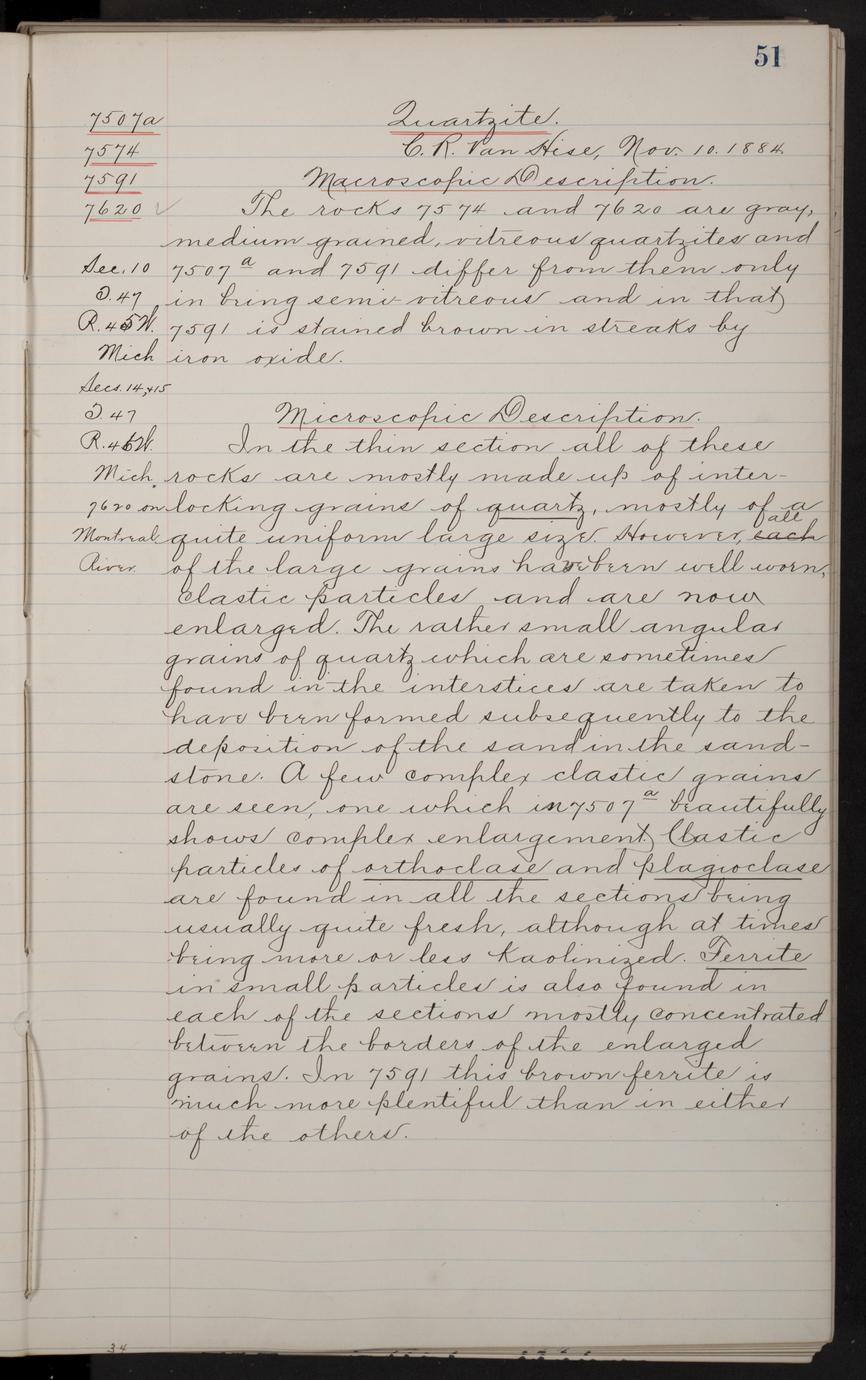 51
7507a Quartzite.
7574 C. R. Van Hise, Nov. 10. 1884.
7591 Macroscopic Description.
7620 ✓ The rocks 7574 and 7620 are gray,
medium grained, vitreous quartzites and
Sec. 10 7507a and 7591 differ from them only
T. 47 in being semi-vitreous and in that
R. 45W. 7591 is stained brown in streaks by
Mich iron oxide.
Secs. 14, +15
T. 47 Microscopic Description.
R. 45W. In the thin section all of these
Mich. rocks are mostly made up of inter-
7620 on locking grains of quartz, mostly of a
Montreal quite uniform large size. However, each all
River. of the large grains have been well worn,
clastic particles and are now
enlarged. The rather small angular
grains of quartz which are sometimes
found in the interstices are taken to
have been formed subsequently to the
deposition of the sand in the sand-
stone. A few complex clastic grains
are seen, one which in 7507a beautifully
shows complex enlargement) Clastic
particles of orthoclase and plagioclase
are found in all the sections being
usually quite fresh, although at times
being more or less kaolinized. Ferrite
in small particles is also found in
each of the sections mostly concentrated
between the borders of the enlarged
grains. In 7591 this brown ferrite is
much more plentiful than in either
of the others.
34